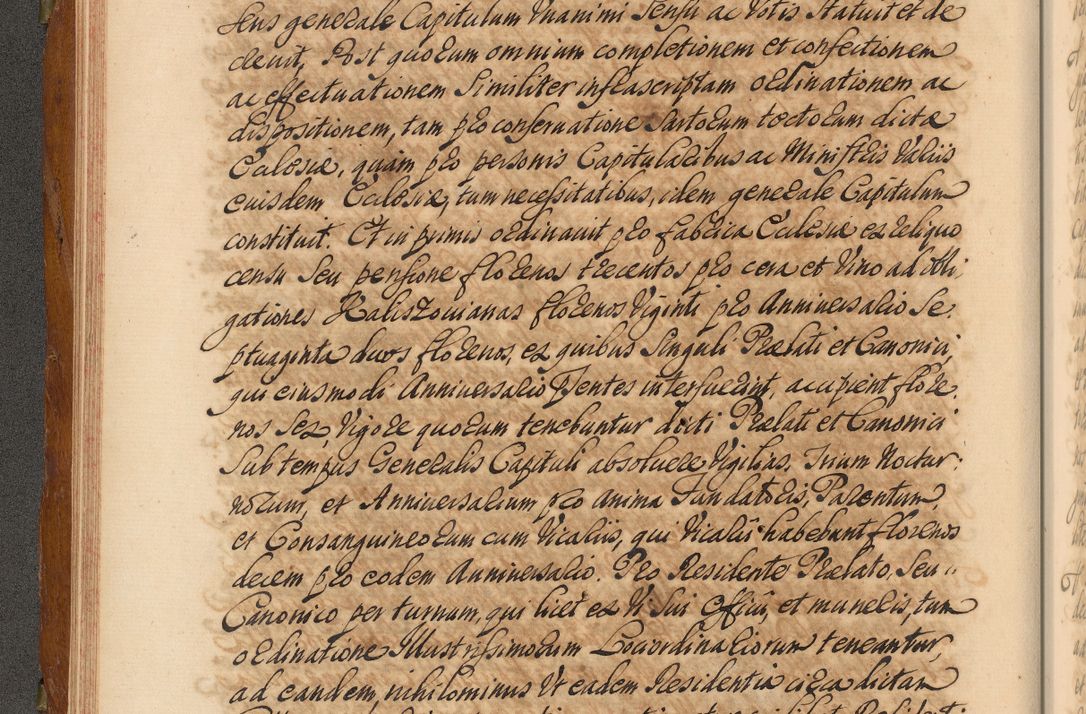 sens generale Capitulum Unanimi sensu ac Votis Statuit et de
crevit, Post quorum omnium completionem et confectionem
ac effectuationem Similiter infrascriptam ordinationem ac
dispositionem, tam pro conservatione Sartorum tectorum dictæ
Ecclesiæ, quàm pro personis Capitularibus ac Ministris Variis
euisdem Ecclesiæ, tum necessitatibus, idem generale Capitulum
constituit. Et in primis ordinavit pro fabrica Ecclesiæ ex reliquo
censu Seu pensione florenos trecentos pro cera et Vino ad obli,
gationes Kaliszovianas florenos Viginti pro Anniversario Se,
ptuaginta duos florenos, ex quibus Singuli Prælati et Canonici,
qui eiusmodi Anniversario Pntes interfuerint, accipient flore,
nos Sex, Vigore quorum tenebuntur dicti Prælati et Canonici
Sub tempus Generalis Capituli absolvere Vigilias, Trium Noctur,
norum, et Anniversarium pro anima Fundatoris, Parentum,
et Consanguineorum cum Vicariis, qui Vicarii habebunt florenos
decem pro eodem Anniversario. Pro Residente Prælato, Seu
Canonico per turnum, qui licet ex Vi Sui officii, et muneris, tum
ordinatione Illustrissimorum Locordinariorum teneantur,
ad eandem, nihilominus Ut eadem Residentia circa dictam